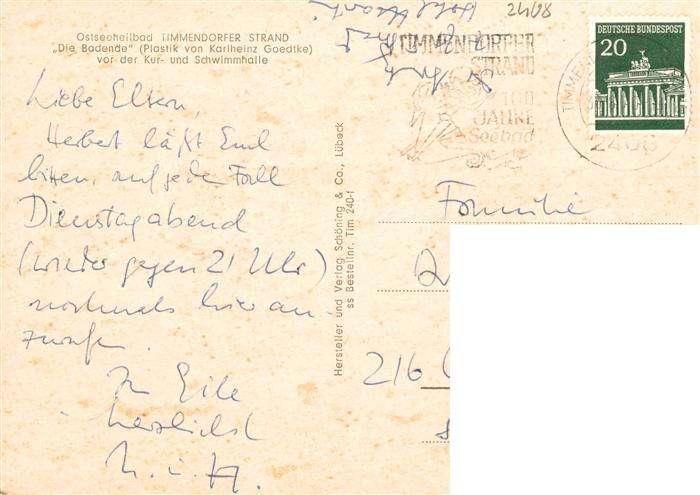 Ostseeheilbad TIMMENDORFER STRAND
„Die Badende“ (Plastik von Karlheinz Goedtke)
vor der Kur- und Schwimmhalle
Liebe Eltern,
Herbert läßt Euch
bitten, auf jeden Fall
Dienstagabend
(wieder gegen 21 Uhr)
nochmals hier an-
zurufen.
In Eile
herzlichst
H. i. H.
Hersteller und Verlag Schöning & Co., Lübeck
ss Bestellnr. Tim 240-f
2408
TIMMENDORFER
STRAND
100
JAHRE
Seebad
TIMME
2408
DEUTSCHE BUNDESPOST
20
Familie
216